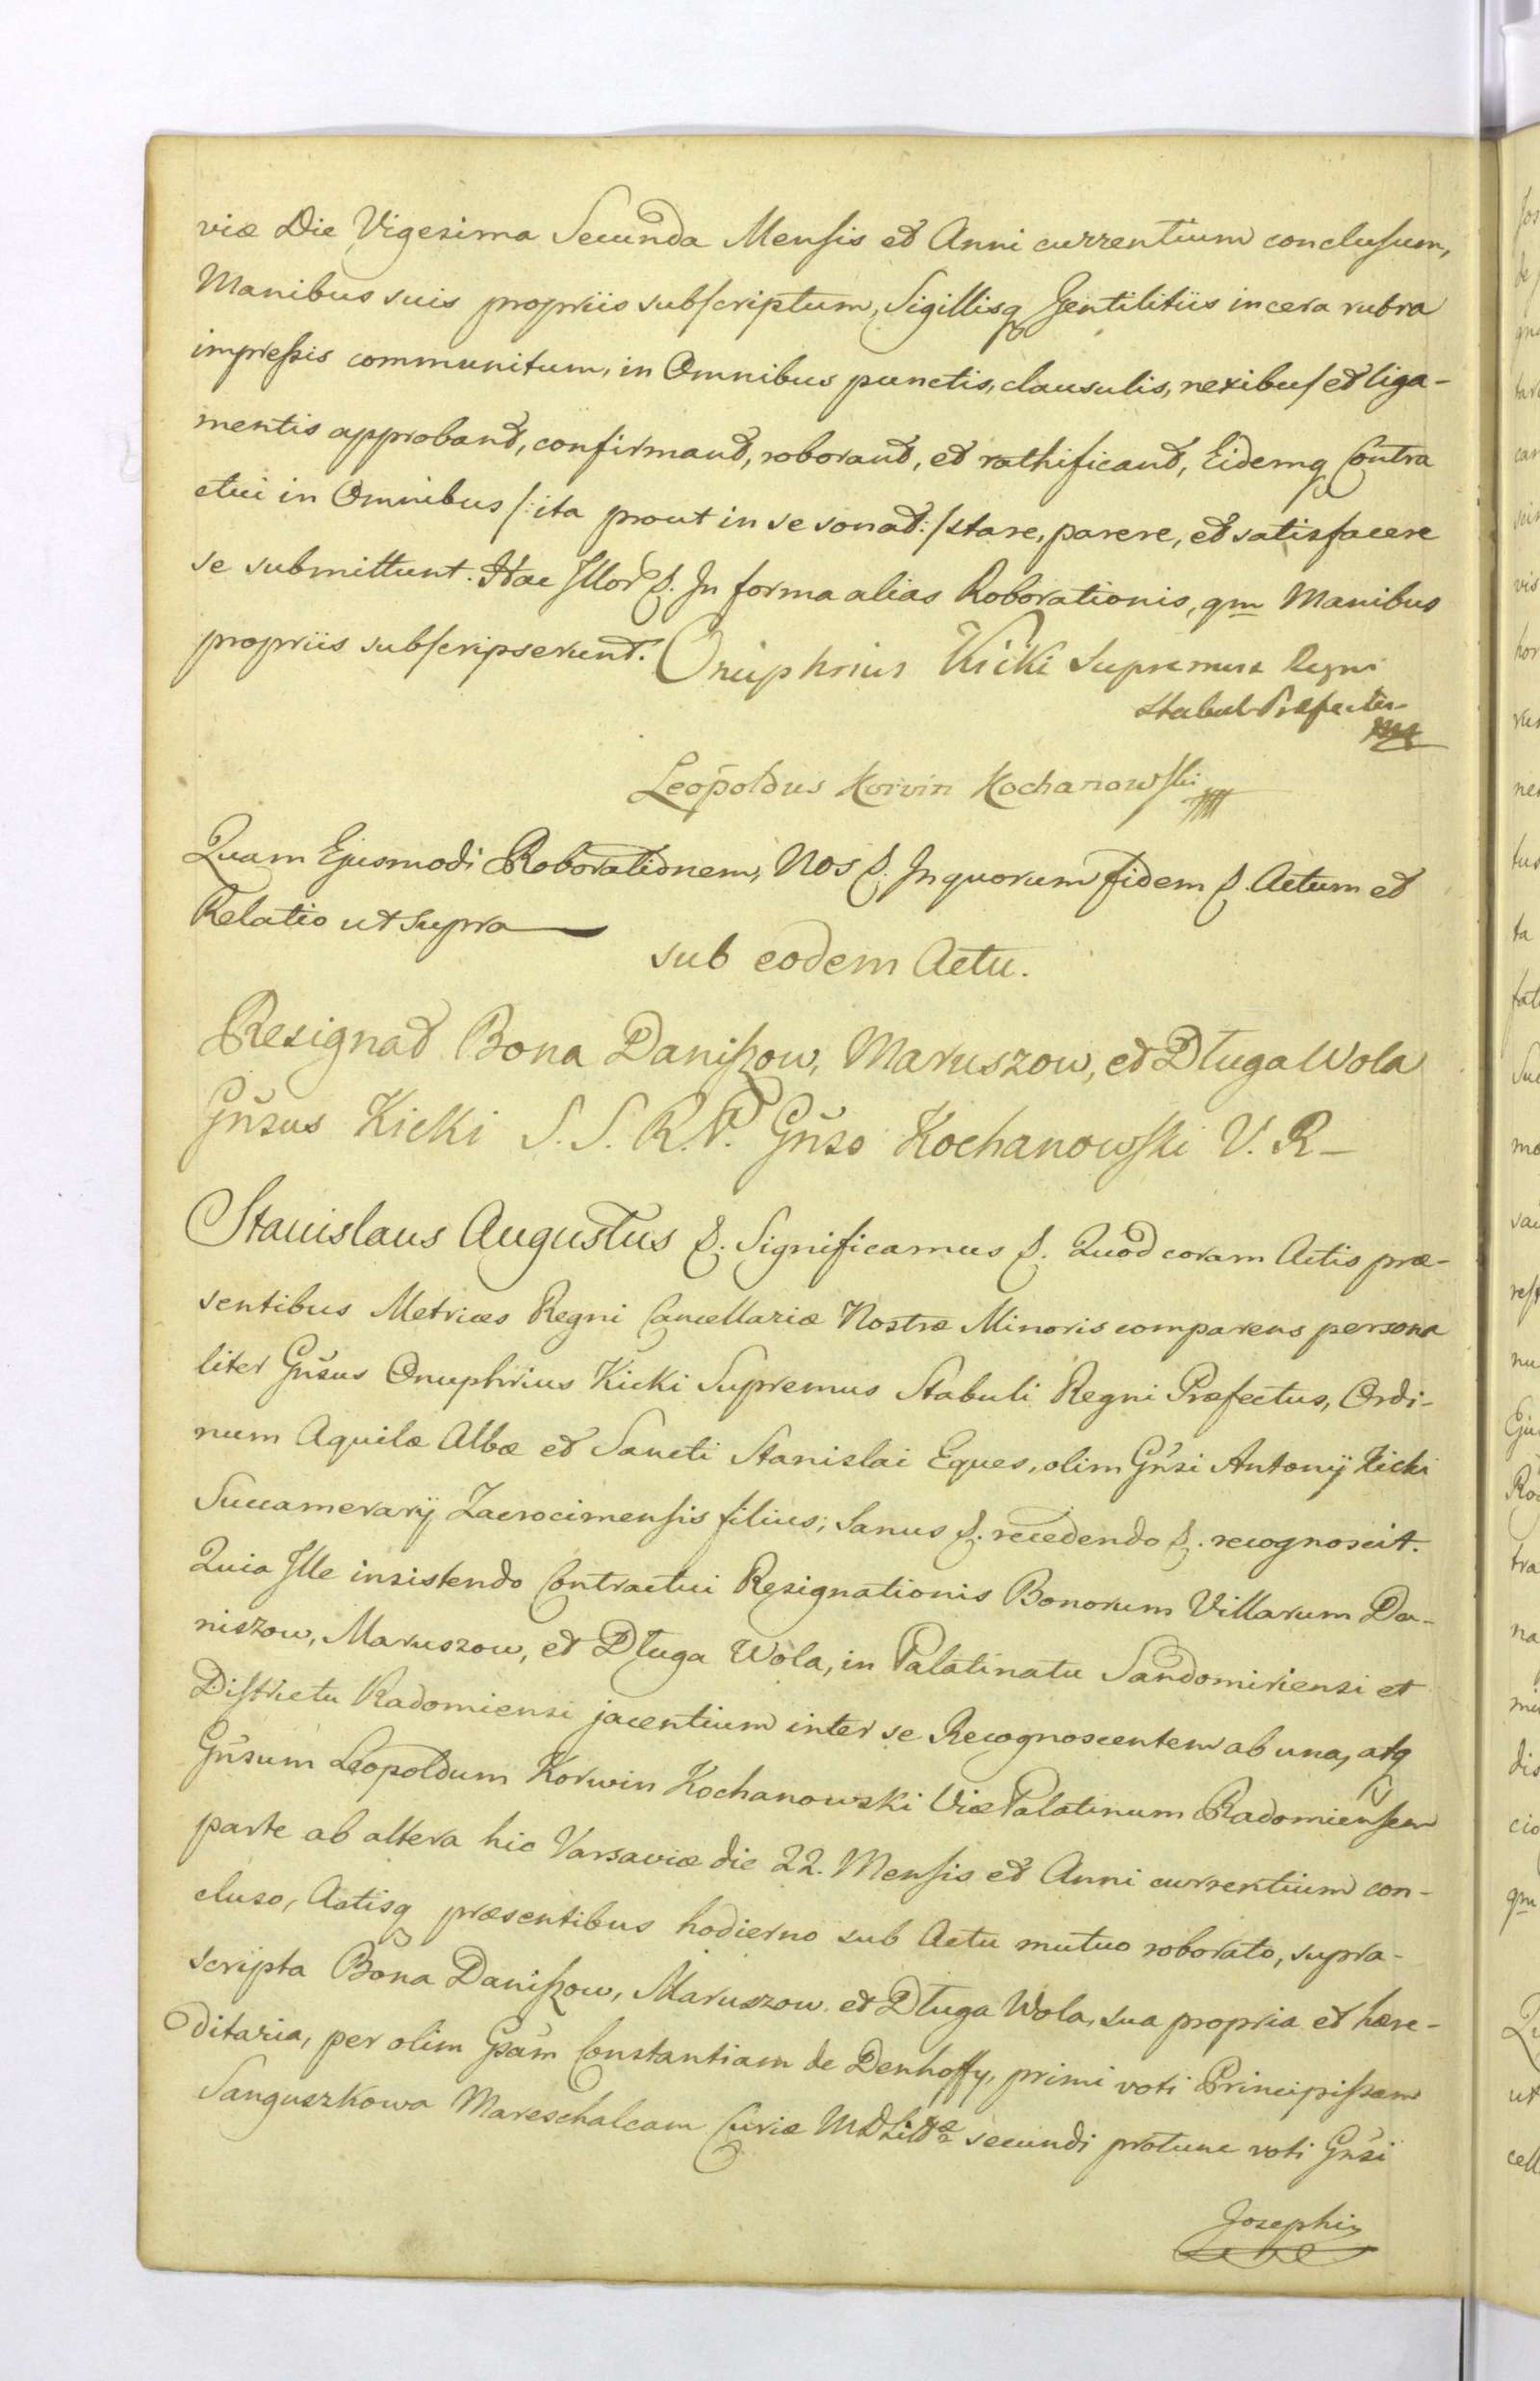 viæ Die Vigesima Secunda Mensis et Anni currentium conclusum,
Manibus suis propriis subscriptum, Sigillisq Gentilitiis in cera rubra
impressis communitum, in Omnibus punctis, clausulis, nexibus et liga-
mentis approband, confirmand, roborand, et rathificand, Eidemq Contra
ctui in Omnibus /: ita prout in se sonat :/ stare, parere, et satisfacere
se submittunt. Hac Illor p. In forma alias Roborationis, qm Manibus
propriis subscripserunt. Onuphrius Kicki Supremus Regni
Stabul Præfectus
mp
Leopoldus Korvin Kochanowski
Quam Ejusmodi Roborationem, Nos p. In quorum fidem p. Actum et
Relatio ut supra
sub eodem Actu.
Resignat Bona Daniszow, Maruszow, et Długa Wola
Gnsus Kicki S. S. R. P. Gnso Kochanowski V. R-
Stanislaus Augustus p. Significamus p. Quod coram Actis præ-
sentibus Metrices Regni Cancellariæ Nostræ Minoris comparens persona
liter Gnsus Onuphrius Kicki Supremus Stabuli Regni Præfectus, Ordi-
num Aquilæ Albæ et Sancti Stanislai Eques, olim Gnsi Antonij Kicki
Succamerarij Zacrocimensis filius, Sanus p. recedendo p. recognoscit.
Quia Ille insistendo Contractui Resignationis Bonorum Villarum Da-
niszow, Maruszow, et Długa Wola, in Palatinatu Sandomiriensi et
Districtu Radomiensi jacentium inter se Recognoscentem ab una, atq
Gnsum Leopoldum Korwin Kochanowski Vice Palatinum Radomiensem
parte ab altera hic Varsaviæ die 22. Mensis et Anni currentium con-
cluso, Actisq præsentibus hodierno sub Actu mutuo roborato, supra-
scripta Bona Daniszow, Maruszow et Długa Wola, sua propria et hære-
ditaria, per olim Gsam Constantiam de Denhoffy, primi voti Principissam
Sanguszkowa Mareschalcam Curiæ MDLittæ secundi protunc voti Gnsi
Josephi